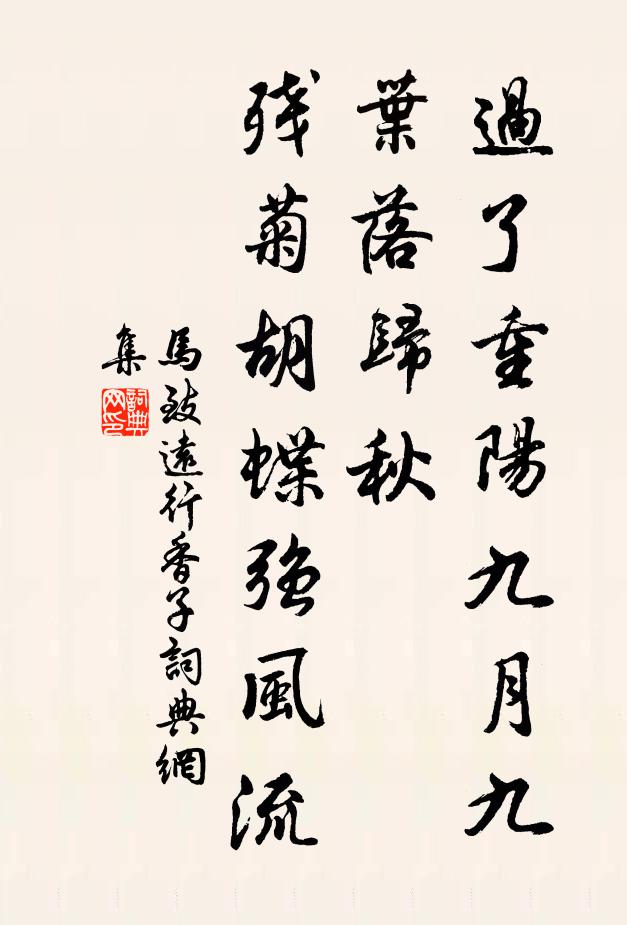 過了重陽九月九
葉落歸秋
残菊胡蝶強風流
馬致遠行香子詞典網
集
詞典網印